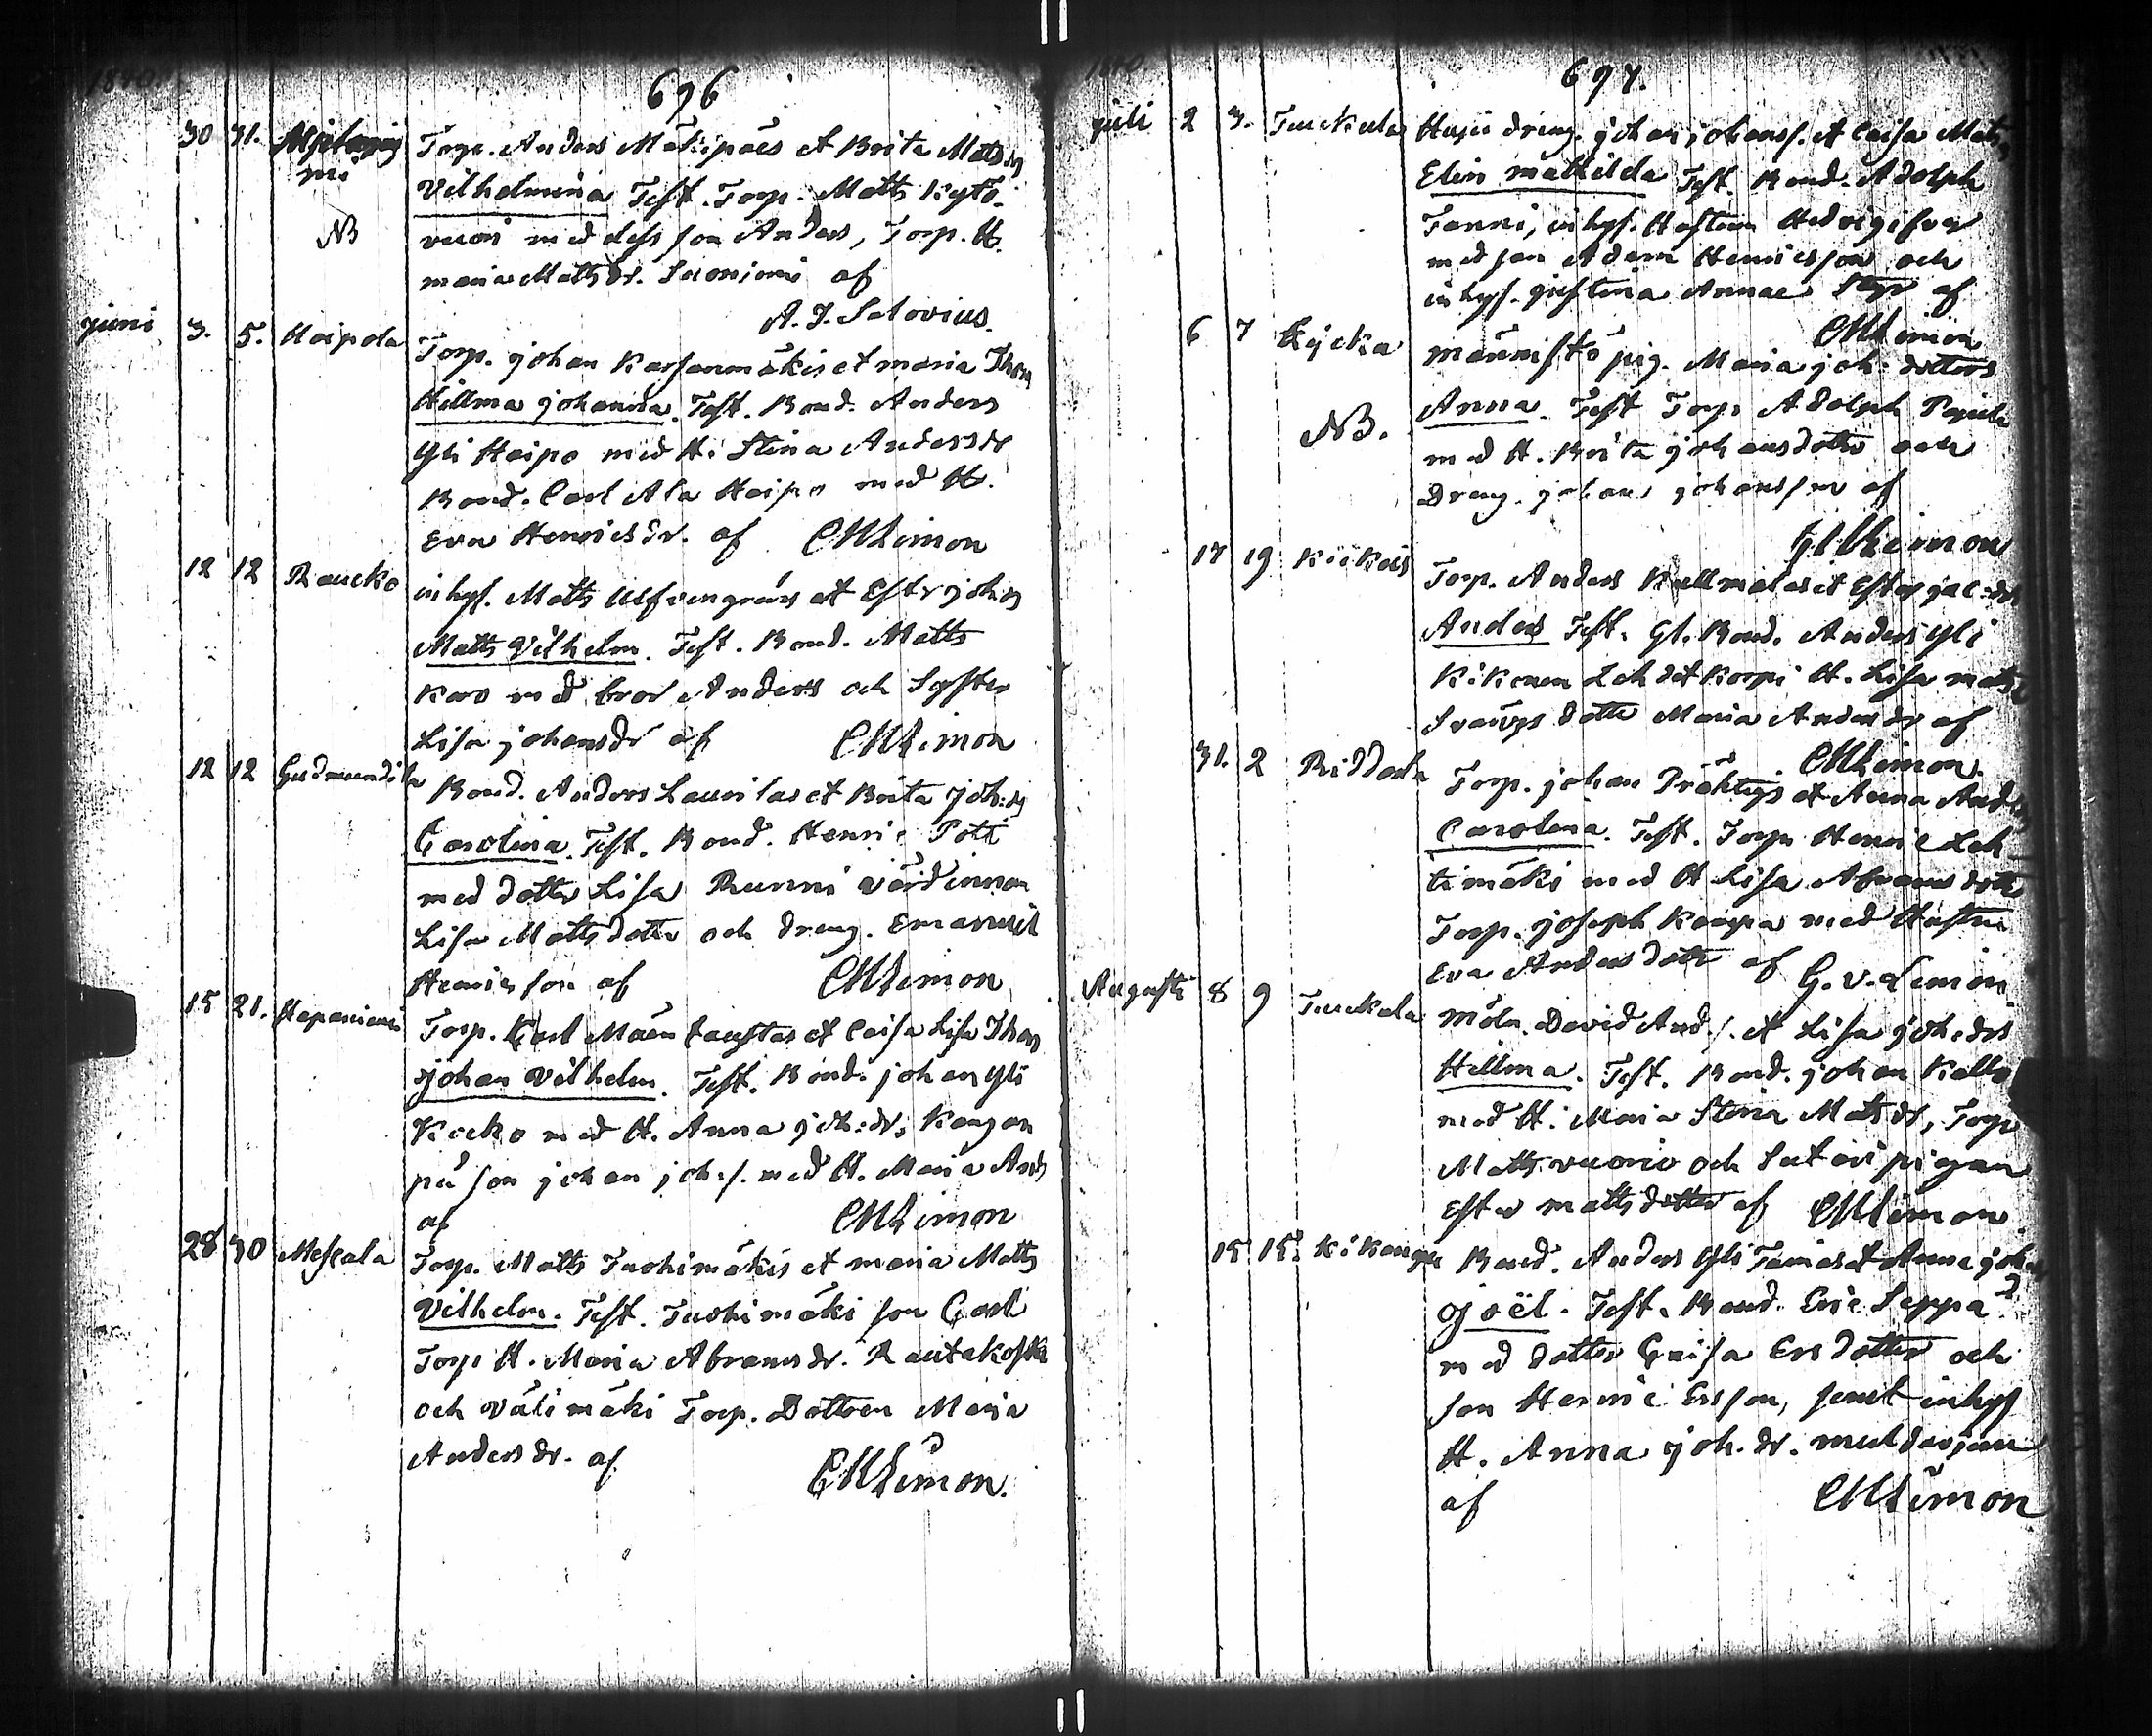 1840.
696
30 31.
Torp. Anders Mäkipäës et Brita Matts dr
Vilhelmina Test. Torp. Matts Kytö-
NB vuori med dess son Anders, Torp. H.
maria Matts dr. Suoniemi af
A. J. Salovius.
juni 3. 5. Haipola
Torp. johan Karjanmäkis et maria Thom
Hillma johanna. Test. Bond. Anders
Yli Haipo med H. Stina Anders dr
Bond. Carl Ala Haipo med H.
Eva Henricsdr. af CMLimon
12 12 Raucko inhys. Matts Ulfvengrens et Ester joh dr
Matts Vilhelm. Test. Bond. Matts
Karo med bror Anders och Syster
Lisa johansdr af CMLimon
12 12 Gudmundila Bond. Anders Laurilas et Brita joh: dr
Carolina. Test. Bond. Henric Potti
med dotter Lisa Runni värdinnan
Lisa Matts dotter och dreng. Emanuel
Henricsson af CMLimon
15 21. Hapaniemi Torp. Carl Mäentaustas et Caisa Lisa Thom
johan Vilhelm. Test. Bond. johan Yli
Kocko med H. Anna joh: dr, Kangan
pä son johan joh. s. med H. Maria And
af CMLimon
28 30 Mescala Torp. Matts Tuohimäkis et maria Matts
Vilhelm. Test. Tuohimäki son Carl
Torp H. Maria Abrams dr. Rautakoski
och Välimäki Torp. Dottren Maria
Anders dr. af CMLimon.
1840
697.
juli 2 3. Tuckula dreng. johan johanss. et Caisa Matts
Elin mathilda Test. Bond. Adolph
Tanni, inhys. Hustrun Hedvig
med son Adam Henricsson och
inhys. justina Annae af
CMLimon
6 7 Kycka männistö pig. Maria joh: dotters
Anna. Test Torp Adolph
NB. med H. Brita johansdotter och
Dreng. johan johansson af
CMLimon
17 19 Kikois Torp. Anders Kullmalas et Ester jac: dr
Anders Test. Gl. Bond. Anders Yli
Kikonen Lehdet Korpi H. Lisa matts
dotter Maria Anders dr af
CMLimon.
31. 2 Riddala Torp. johan Präktigs et Anna And
Carolina. Test. Torp Henric Leh
timäki med H Lisa Abrams dotter
Torp. joseph Kaapa med Hustru
Eva Anders dotter af G. v. Limon
Augusti 8 9 Tuckala Möln. David And. s. et Lisa joh: dr
Hillma. Test. Bond. johan Kallo
med H. Maria Stina Matts dr, Torp
Matts vuorio och Sutari pigan
Ester matts dotter af CMLimon
15 15. Kikangu Bond. Anders Yli Tainas et Anna joh
joël. Test. Bond. Eric Seppä
med dotter Caisa Ers dotter och
son Henric Ersson, samt inhys
H. Anna joh. dr. multasjan
af CMLimon